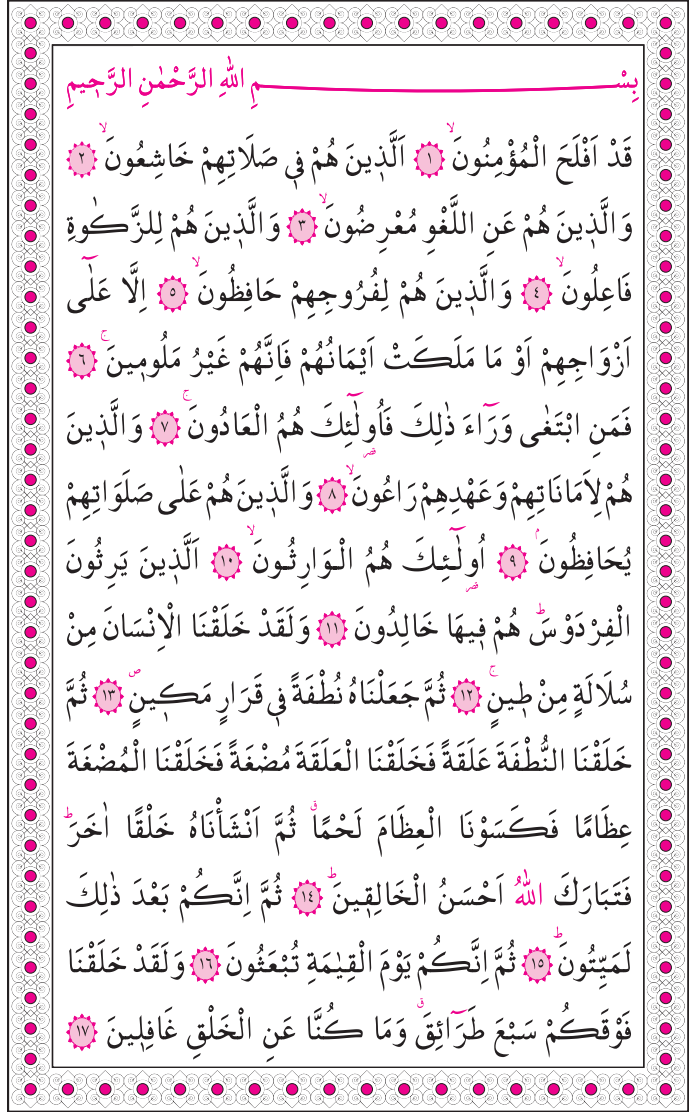 بِسْــــــــــــــــــمِ اللّٰهِ الرَّحْمٰنِ الرَّح۪يمِ
قَدْ اَفْلَحَ الْمُؤْمِنُونَۙ ﴿١﴾ اَلَّذ۪ينَ هُمْ ف۪ي صَلَاتِهِمْ خَاشِعُونَۙ ﴿٢﴾
وَالَّذ۪ينَ هُمْ عَنِ اللَّغْوِ مُعْرِضُونَۙ ﴿٣﴾ وَالَّذ۪ينَ هُمْ لِلزَّكٰوةِ
فَاعِلُونَۙ ﴿٤﴾ وَالَّذ۪ينَ هُمْ لِفُرُوجِهِمْ حَافِظُونَۙ ﴿٥﴾ اِلَّا عَلٰٓى
اَزْوَاجِهِمْ اَوْ مَا مَلَكَتْ اَيْمَانُهُمْ فَاِنَّهُمْ غَيْرُ مَلُوم۪ينَۚ ﴿٦﴾
فَمَنِ ابْتَغٰى وَرَٓاءَ ذٰلِكَ فَاُو۬لٰٓئِكَ هُمُ الْعَادُونَۚ ﴿٧﴾ وَالَّذ۪ينَ
هُمْ لِاَمَانَاتِهِمْ وَعَهْدِهِمْ رَاعُونَۙ ﴿٨﴾ وَالَّذ۪ينَ هُمْ عَلٰى صَلَوَاتِهِمْ
يُحَافِظُونَۢ ﴿٩﴾ اُو۬لٰٓئِكَ هُمُ الْوَارِثُونَۙ ﴿١٠﴾ اَلَّذ۪ينَ يَرِثُونَ
الْفِرْدَوْسَۜ هُمْ ف۪يهَا خَالِدُونَ ﴿١١﴾ وَلَقَدْ خَلَقْنَا الْاِنْسَانَ مِنْ
سُلَالَةٍ مِنْ ط۪ينٍۚ ﴿١٢﴾ ثُمَّ جَعَلْنَاهُ نُطْفَةً ف۪ي قَرَارٍ مَك۪ينٍۖ ﴿١٣﴾ ثُمَّ
خَلَقْنَا النُّطْفَةَ عَلَقَةً فَخَلَقْنَا الْعَلَقَةَ مُضْغَةً فَخَلَقْنَا الْمُضْغَةَ
عِظَامًا فَكَسَوْنَا الْعِظَامَ لَحْمًاۗ ثُمَّ اَنْشَأْنَاهُ خَلْقًا اٰخَرَۜ
فَتَبَارَكَ اللّٰهُ اَحْسَنُ الْخَالِق۪ينَۜ ﴿١٤﴾ ثُمَّ اِنَّكُمْ بَعْدَ ذٰلِكَ
لَمَيِّتُونَۜ ﴿١٥﴾ ثُمَّ اِنَّكُمْ يَوْمَ الْقِيٰمَةِ تُبْعَثُونَ ﴿١٦﴾ وَلَقَدْ خَلَقْنَا
فَوْقَكُمْ سَبْعَ طَرَٓائِقَۗ وَمَا كُنَّا عَنِ الْخَلْقِ غَافِل۪ينَ ﴿١٧﴾